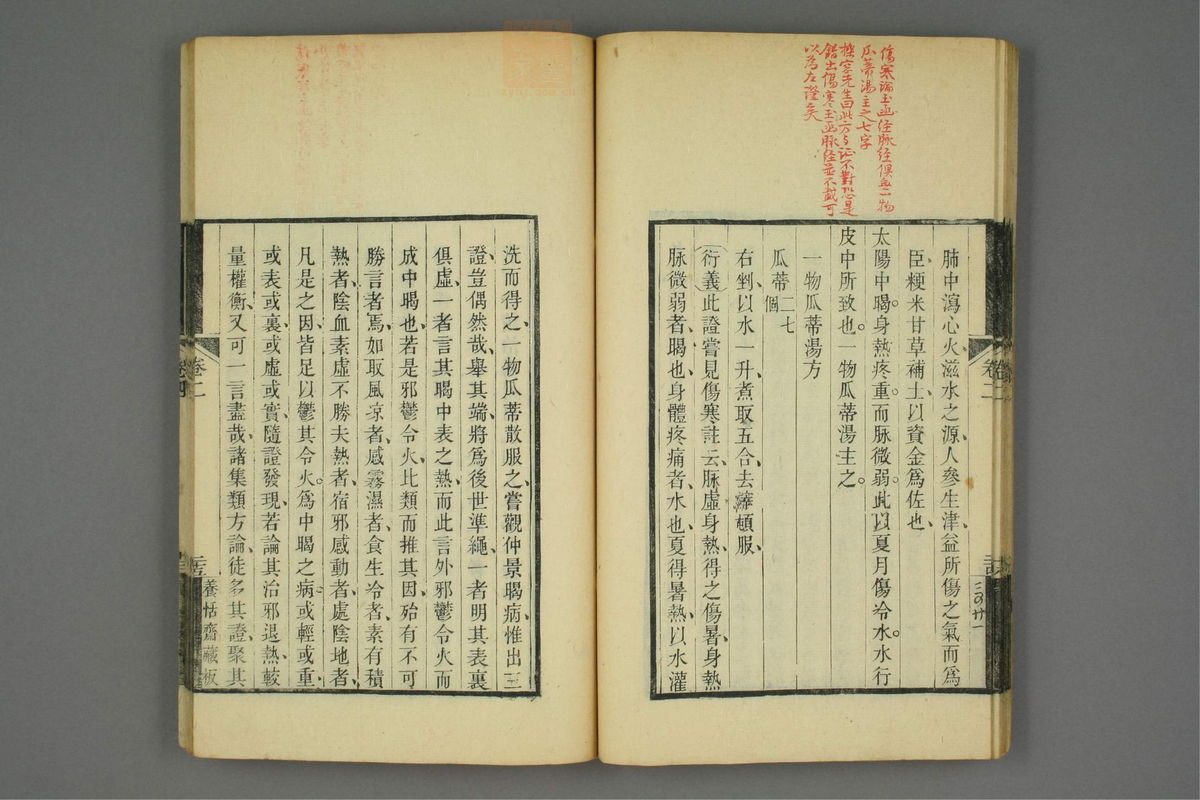 傷寒論玉函經脉經俱無一物
瓜蒂湯主之七字
櫟窓先生曰此方与证不對恐是
錯出傷寒玉函脉经並不載可
以為左證矣
肺中瀉心火滋水之源人參生津益所傷之氣而爲
臣粳米甘草補土以資金爲佐也
太陽中暍身熱疼重而脉微弱此以夏月傷冷水水行
皮中所致也一物瓜蒂湯主之
一物瓜蒂湯方
瓜蒂二七個
右剉以水一升煮取五合去滓頓服
(衍義)此證嘗見傷寒註云脉虛身熱得之傷暑身熱
脉微弱者暍也身體疼痛者水也夏得暑熱以水灌
洗而得之一物瓜蒂散服之嘗觀仲景暍病惟出三
證豈偶然哉舉其端將爲後世準繩一者明其表裏
俱虛一者言其暍中表之熱而此言外邪鬱令火而
成中暍也若是邪鬱令火比類而推其因殆有不可
勝言者焉如取風凉者感霧濕者食生冷者素有積
熱者陰血素虛不勝夫熱者宿邪感動者處陰地者
凡是之因皆足以鬱其令火爲中暍之病或輕或重
或表或裏或虛或實隨證發現若論其治邪退熱較
量權衡又可一言盡哉諸集類方論徒多其證聚其
卷二
養恬齋藏板
卷二